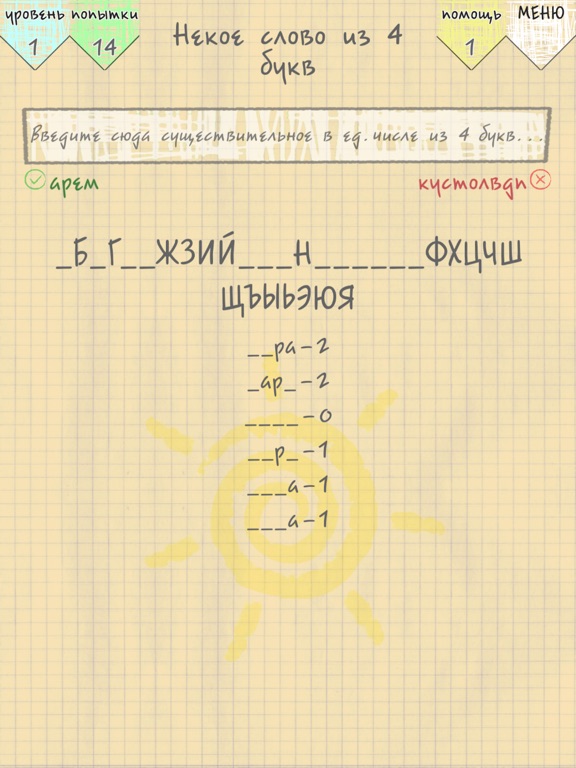 уровень попытки помощь МЕНЮ
1 14 Некое слово из 4 1
букв
Введите сюда существительное в ед. числе из 4 букв...
арем кустолвдп
_Б_Г__ЖЗИЙ___Н______ФХЦЧШ
ЩЪЫЬЭЮЯ
__ра-2
_ар_-2
____-0
__р_-1
___а-1
___а-1